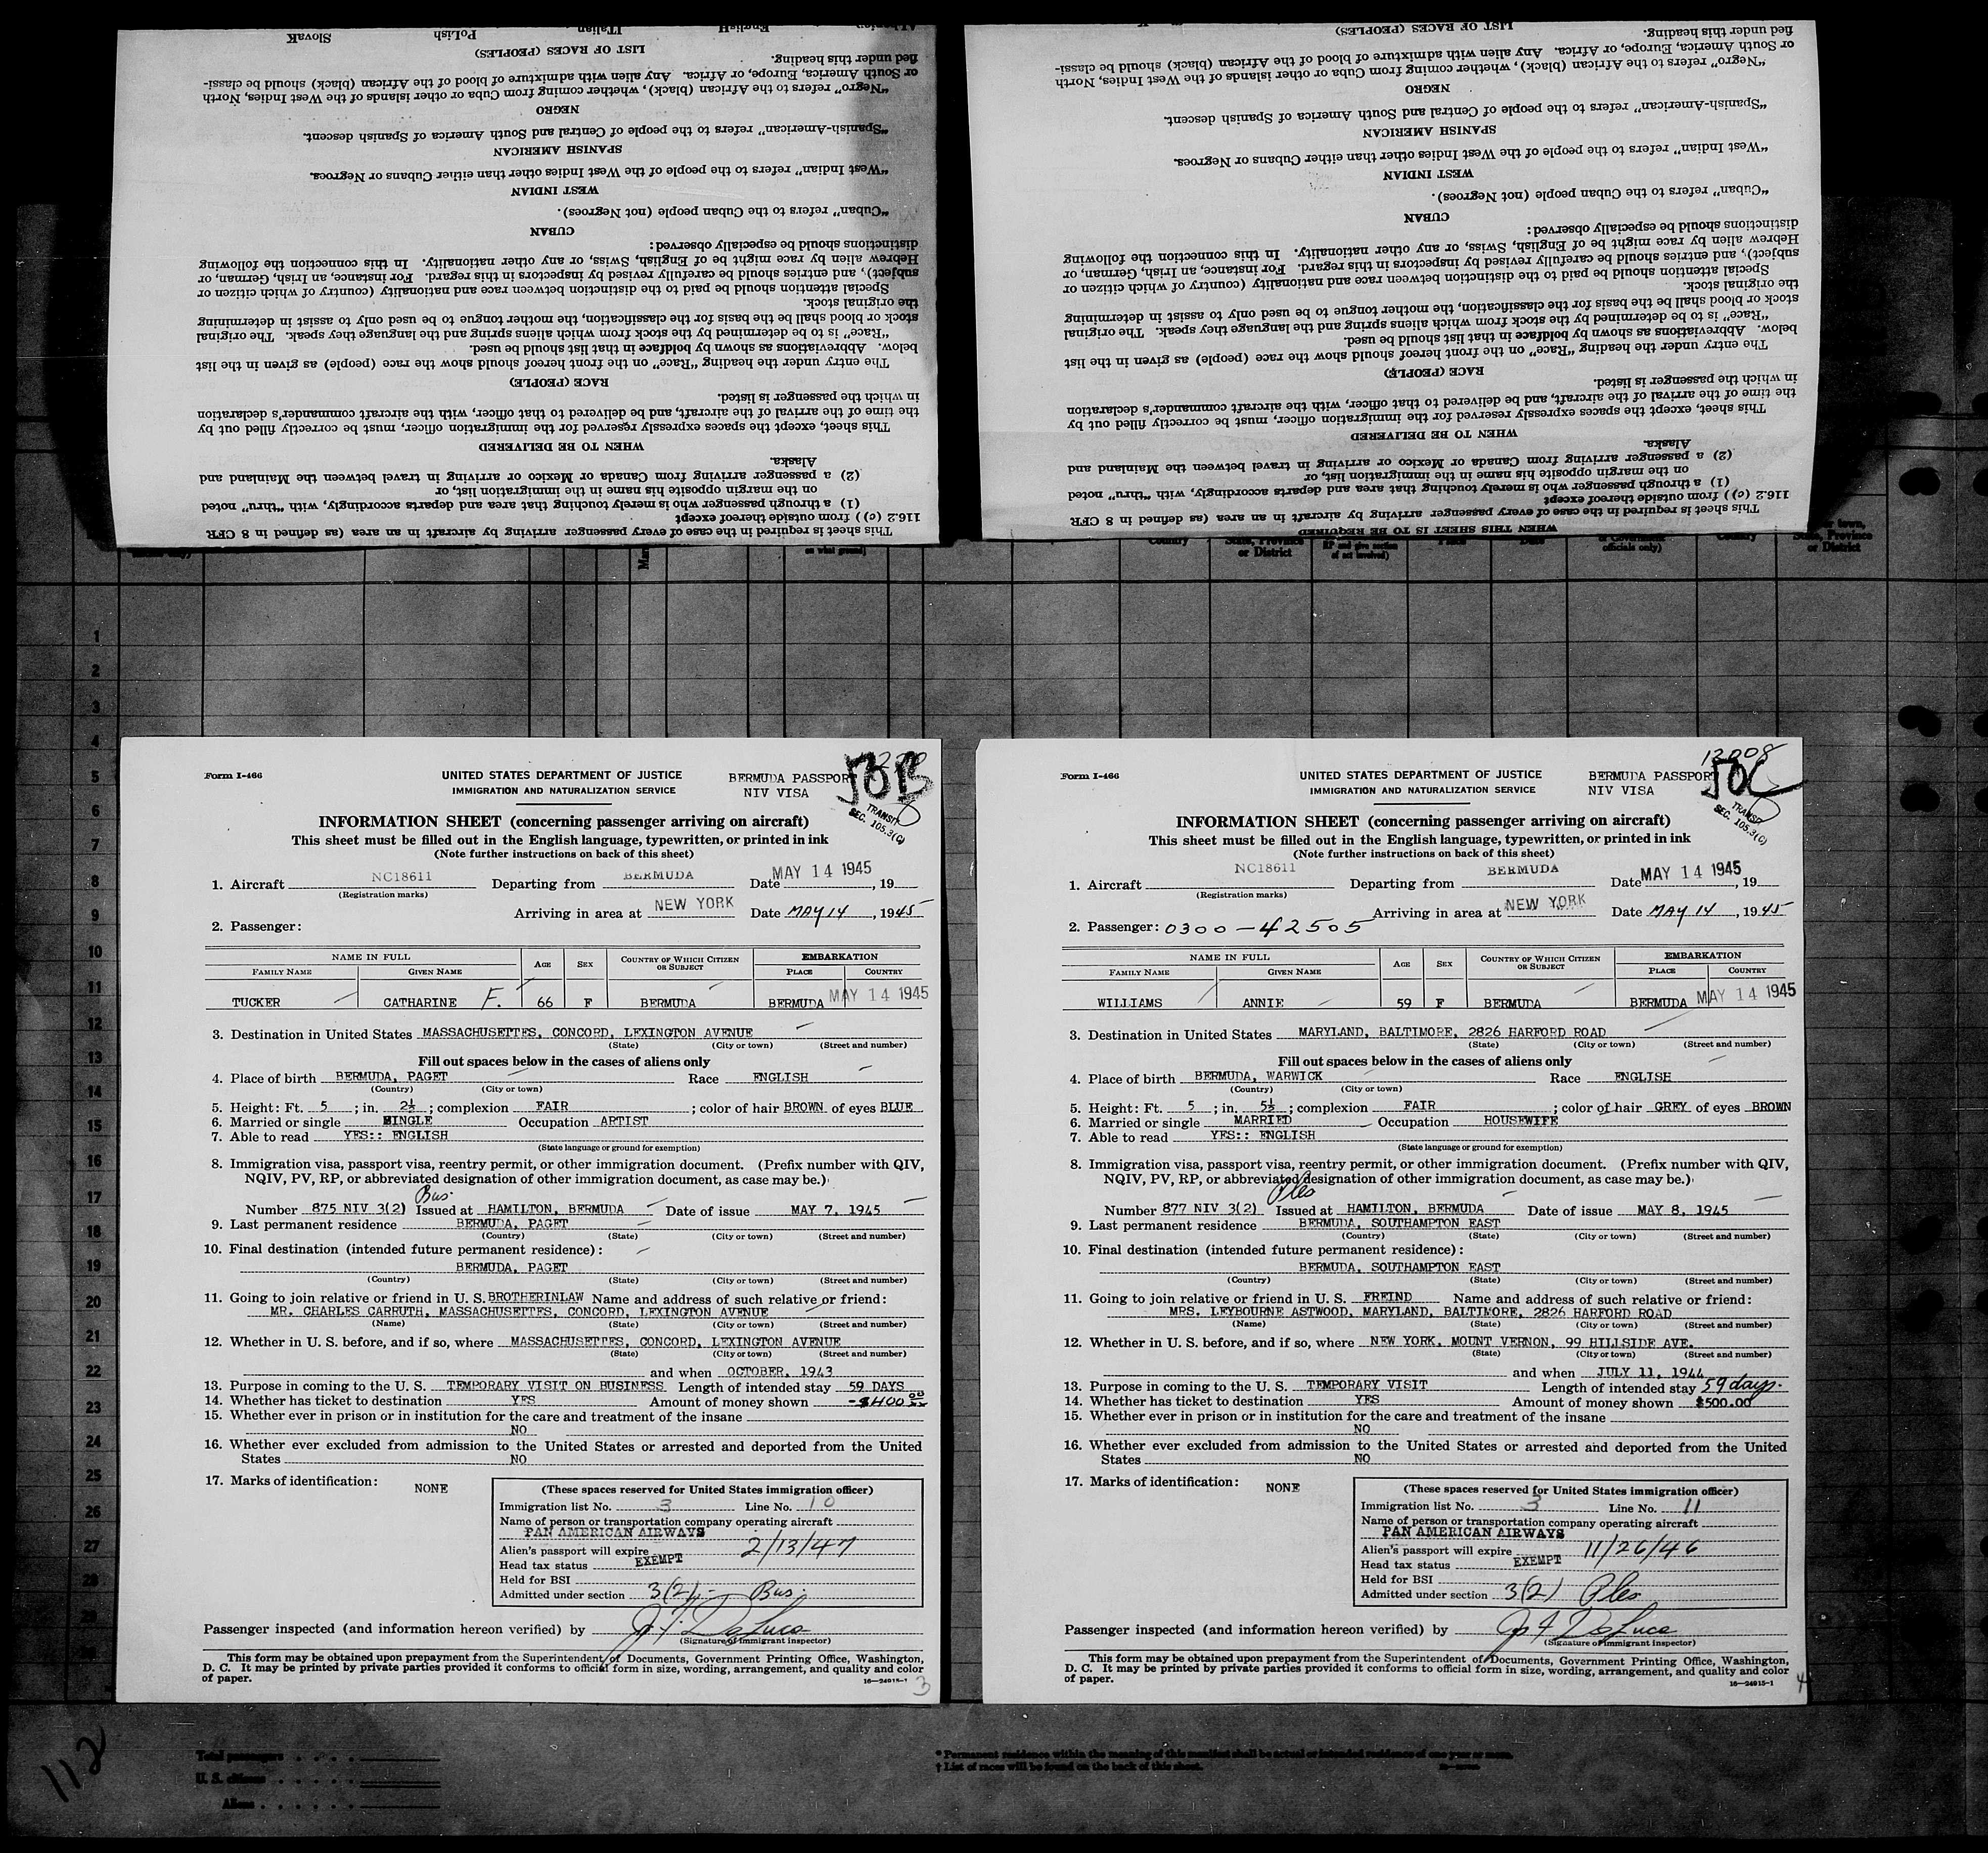 Slovak Polish Italian English
LIST OF RACES (PEOPLES)
fied under this heading.
or South America, Europe, or Africa. Any alien with admixture of blood of the African (black) should be classi-
"Negro" refers to the African (black), whether coming from Cuba or other islands of the West Indies, North
NEGRO
"Spanish-American" refers to the people of Central and South America of Spanish descent.
SPANISH AMERICAN
"West Indian" refers to the people of the West Indies other than either Cubans or Negroes.
WEST INDIAN
"Cuban" refers to the Cuban people (not Negroes).
CUBAN
distinctions should be especially observed:
Hebrew alien by race might be of English, Swiss, or any other nationality. In this connection the following
subject), and entries should be carefully revised by inspectors in this regard. For instance, an Irish, German, or
Special attention should be paid to the distinction between race and nationality (country of which citizen or
the original stock.
stock or blood shall be the basis for the classification, the mother tongue to be used only to assist in determining
"Race" is to be determined by the stock from which aliens spring and the language they speak. The original
below. Abbreviations as shown by boldface in that list should be used.
The entry under the heading "Race" on the front hereof should show the race (people) as given in the list
RACE (PEOPLE)
in which the passenger is listed.
the time of the arrival of the aircraft, and be delivered to that officer, with the aircraft commander's declaration
This sheet, except the spaces expressly reserved for the immigration officer, must be correctly filled out by
WHEN TO BE DELIVERED
Alaska.
(2) a passenger arriving from Canada or Mexico or arriving in travel between the Mainland and
on the margin opposite his name in the immigration list, or
(1) a through passenger who is merely touching that area and departs accordingly, with "thru" noted
116.2 (c)) from outside thereof except
This sheet is required in the case of every passenger arriving by aircraft in an area (as defined in 8 CFR
LIST OF RACES (PEOPLES)
fied under this heading.
or South America, Europe, or Africa. Any alien with admixture of blood of the African (black) should be classi-
"Negro" refers to the African (black), whether coming from Cuba or other islands of the West Indies, North
NEGRO
"Spanish-American" refers to the people of Central and South America of Spanish descent.
SPANISH AMERICAN
"West Indian" refers to the people of the West Indies other than either Cubans or Negroes.
WEST INDIAN
"Cuban" refers to the Cuban people (not Negroes).
CUBAN
distinctions should be especially observed:
Hebrew alien by race might be of English, Swiss, or any other nationality. In this connection the following
subject), and entries should be carefully revised by inspectors in this regard. For instance, an Irish, German, or
Special attention should be paid to the distinction between race and nationality (country of which citizen or
the original stock.
stock or blood shall be the basis for the classification, the mother tongue to be used only to assist in determining
"Race" is to be determined by the stock from which aliens spring and the language they speak. The original
below. Abbreviations as shown by boldface in that list should be used.
The entry under the heading "Race" on the front hereof should show the race (people) as given in the list
RACE (PEOPLE)
in which the passenger is listed.
the time of the arrival of the aircraft, and be delivered to that officer, with the aircraft commander's declaration
This sheet, except the spaces expressly reserved for the immigration officer, must be correctly filled out by
WHEN TO BE DELIVERED
Alaska.
(2) a passenger arriving from Canada or Mexico or arriving in travel between the Mainland and
on the margin opposite his name in the immigration list, or
(1) a through passenger who is merely touching that area and departs accordingly, with "thru" noted
116.2 (c)) from outside thereof except
This sheet is required in the case of every passenger arriving by aircraft in an area (as defined in 8 CFR
WHEN THIS SHEET IS TO BE REQUIRED
on what ground)
Country
State, Province
or District
RP and give section
of act involved)
Place
Date
officials only)
Country
or town,
State, Province
or District
1
2
3
4
5
6
7
8
9
10
11
12
13
14
15
16
17
18
19
20
21
22
23
24
25
26
27
28
29
Form I-466
UNITED STATES DEPARTMENT OF JUSTICE
IMMIGRATION AND NATURALIZATION SERVICE
BERMUDA PASSPORT
NIV VISA
TRANSIT
SEC. 105.3(C)
INFORMATION SHEET (concerning passenger arriving on aircraft)
This sheet must be filled out in the English language, typewritten, or printed in ink
(Note further instructions on back of this sheet)
1. Aircraft NC18611 Departing from BERMUDA Date MAY 14 1945, 19
(Registration marks)
Arriving in area at NEW YORK Date MAY 14, 1945
2. Passenger:
NAME IN FULL AGE SEX COUNTRY OF WHICH CITIZEN OR SUBJECT EMBARKATION
FAMILY NAME GIVEN NAME PLACE COUNTRY
TUCKER CATHARINE F. 66 F BERMUDA BERMUDA MAY 14 1945
3. Destination in United States MASSACHUSETTES, CONCORD, LEXINGTON AVENUE
(State) (City or town) (Street and number)
Fill out spaces below in the cases of aliens only
4. Place of birth BERMUDA, PAGET Race ENGLISH
(Country) (City or town)
5. Height: Ft. 5; in. 2½; complexion FAIR; color of hair BROWN of eyes BLUE
6. Married or single SINGLE Occupation ARTIST
7. Able to read YES:: ENGLISH
(State language or ground for exemption)
8. Immigration visa, passport visa, reentry permit, or other immigration document. (Prefix number with QIV,
NQIV, PV, RP, or abbreviated designation of other immigration document, as case may be.)
Bus.
Number 875 NIV 3(2) Issued at HAMILTON, BERMUDA Date of issue MAY 7, 1945
9. Last permanent residence BERMUDA, PAGET
(Country) (State) (City or town) (Street and number)
10. Final destination (intended future permanent residence):
BERMUDA, PAGET
(Country) (State) (City or town) (Street and number)
11. Going to join relative or friend in U. S. BROTHERINLAW Name and address of such relative or friend:
MR. CHARLES CARRUTH, MASSACHUSETTES, CONCORD, LEXINGTON AVENUE
(Name) (State) (City or town) (Street and number)
12. Whether in U. S. before, and if so, where MASSACHUSETTES, CONCORD, LEXINGTON AVENUE
(State) (City or town) (Street and number)
and when OCTOBER, 1943
13. Purpose in coming to the U. S. TEMPORARY VISIT ON BUSINESS Length of intended stay 59 DAYS
14. Whether has ticket to destination YES Amount of money shown $400 00
15. Whether ever in prison or in institution for the care and treatment of the insane
NO
16. Whether ever excluded from admission to the United States or arrested and deported from the United
States NO
17. Marks of identification: NONE
(These spaces reserved for United States immigration officer)
Immigration list No. 3 Line No. 10
Name of person or transportation company operating aircraft
PAN AMERICAN AIRWAYS
Alien's passport will expire 2/13/47
Head tax status EXEMPT
Held for BSI
Admitted under section 3(2) - Bus.
Passenger inspected (and information hereon verified) by J F DeLuca
(Signature of immigrant inspector)
This form may be obtained upon prepayment from the Superintendent of Documents, Government Printing Office, Washington,
D. C. It may be printed by private parties provided it conforms to official form in size, wording, arrangement, and quality and color
of paper.
16—24915-1
3
Form I-466
UNITED STATES DEPARTMENT OF JUSTICE
IMMIGRATION AND NATURALIZATION SERVICE
BERMUDA PASSPORT
NIV VISA
TRANSIT
SEC. 105.3(C)
INFORMATION SHEET (concerning passenger arriving on aircraft)
This sheet must be filled out in the English language, typewritten, or printed in ink
(Note further instructions on back of this sheet)
1. Aircraft NC18611 Departing from BERMUDA Date MAY 14 1945, 19
(Registration marks)
Arriving in area at NEW YORK Date MAY 14, 1945
2. Passenger: 0300-42505
NAME IN FULL AGE SEX COUNTRY OF WHICH CITIZEN OR SUBJECT EMBARKATION
FAMILY NAME GIVEN NAME PLACE COUNTRY
WILLIAMS ANNIE 59 F BERMUDA BERMUDA MAY 14 1945
3. Destination in United States MARYLAND, BALTIMORE, 2826 HARFORD ROAD
(State) (City or town) (Street and number)
Fill out spaces below in the cases of aliens only
4. Place of birth BERMUDA, WARWICK Race ENGLISH
(Country) (City or town)
5. Height: Ft. 5; in. 5½; complexion FAIR; color of hair GREY of eyes BROWN
6. Married or single MARRIED Occupation HOUSEWIFE
7. Able to read YES:: ENGLISH
(State language or ground for exemption)
8. Immigration visa, passport visa, reentry permit, or other immigration document. (Prefix number with QIV,
NQIV, PV, RP, or abbreviated designation of other immigration document, as case may be.)
Ples
Number 877 NIV 3(2) Issued at HAMILTON, BERMUDA Date of issue MAY 8, 1945
9. Last permanent residence BERMUDA, SOUTHAMPTON EAST
(Country) (State) (City or town) (Street and number)
10. Final destination (intended future permanent residence):
BERMUDA, SOUTHAMPTON EAST
(Country) (State) (City or town) (Street and number)
11. Going to join relative or friend in U. S. FREIND Name and address of such relative or friend:
MRS. LEYBOURNE ASTWOOD, MARYLAND, BALTIMORE, 2826 HARFORD ROAD
(Name) (State) (City or town) (Street and number)
12. Whether in U. S. before, and if so, where NEW YORK, MOUNT VERNON, 99 HILLSIDE AVE.
(State) (City or town) (Street and number)
and when JULY 11, 1944
13. Purpose in coming to the U. S. TEMPORARY VISIT Length of intended stay 59 days.
14. Whether has ticket to destination YES Amount of money shown $500.00
15. Whether ever in prison or in institution for the care and treatment of the insane
NO
16. Whether ever excluded from admission to the United States or arrested and deported from the United
States NO
17. Marks of identification: NONE
(These spaces reserved for United States immigration officer)
Immigration list No. 3 Line No. 11
Name of person or transportation company operating aircraft
PAN AMERICAN AIRWAYS
Alien's passport will expire 11/26/46
Head tax status EXEMPT
Held for BSI
Admitted under section 3(2) Ples
Passenger inspected (and information hereon verified) by J F DeLuca
(Signature of immigrant inspector)
This form may be obtained upon prepayment from the Superintendent of Documents, Government Printing Office, Washington,
D. C. It may be printed by private parties provided it conforms to official form in size, wording, arrangement, and quality and color
of paper.
16—24915-1
4
112
Total passengers . . . .
U. S. citizens . . . . .
Aliens . . . . . .
* Permanent residence within the meaning of this manifest shall be actual or intended residence of one year or more.
† List of races will be found on the back of this sheet.